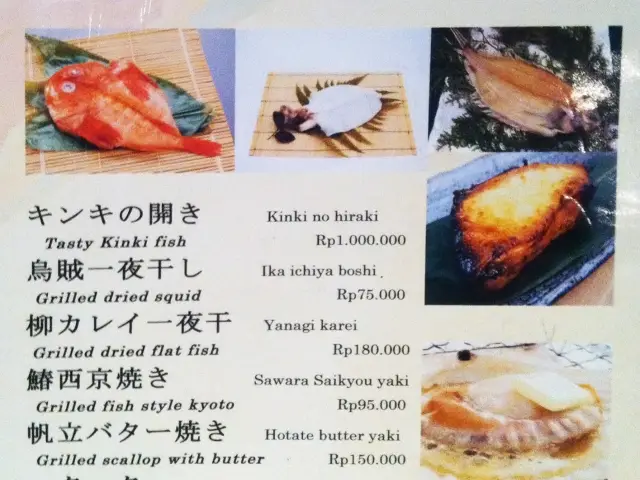 キンキの開き Kinki no hiraki
Tasty Kinki fish Rp1.000.000
烏賊一夜干し Ika ichiya boshi
Grilled dried squid Rp75.000
柳カレイ一夜干 Yanagi karei
Grilled dried flat fish Rp180.000
鰆西京焼き Sawara Saikyou yaki
Grilled fish style kyoto Rp95.000
帆立バター焼き Hotate butter yaki
Grilled scallop with butter Rp150.000